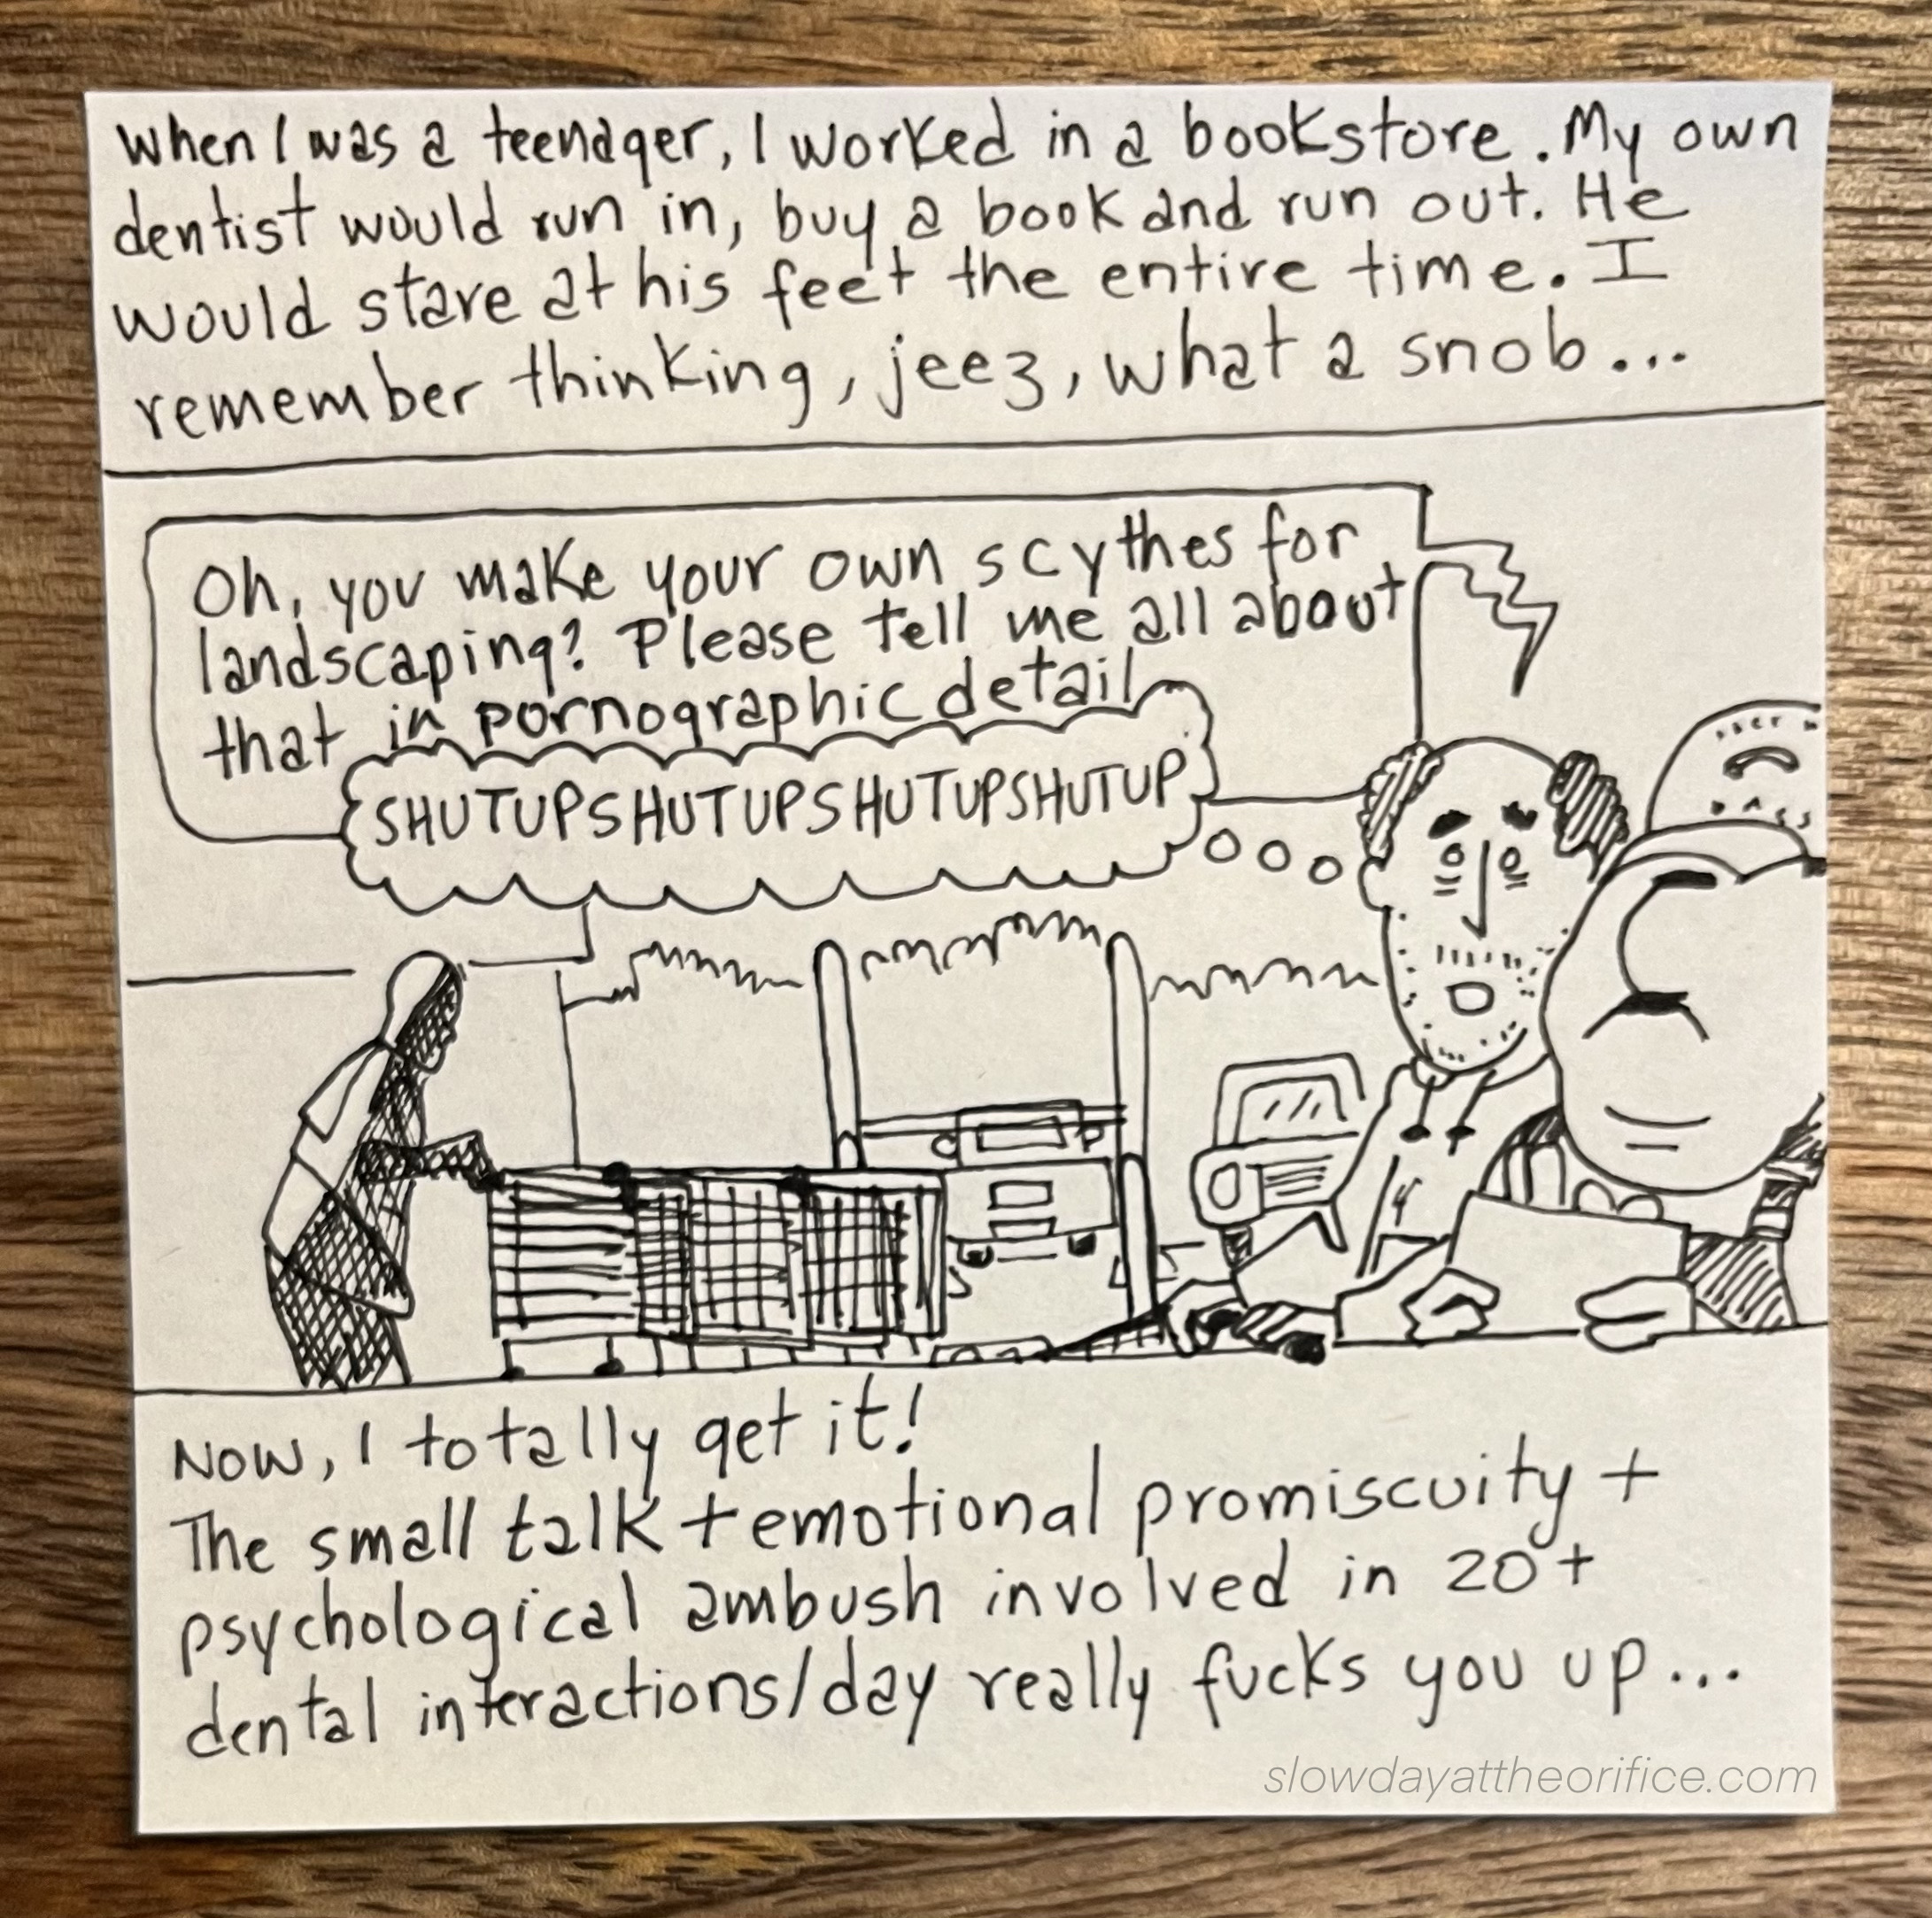 When I was a teenager, I worked in a bookstore. My own
dentist would run in, buy a book and run out. He
would stare at his feet the entire time. I
remember thinking, jeez, what a snob...
Oh, you make your own scythes for
landscaping? Please tell me all about
that in pornographic detail
SHUTUPSHUTUPSHUTUPSHUTUP
Now, I totally get it!
The small talk + emotional promiscuity +
psychological ambush involved in 20+
dental interactions/day really fucks you up...
slowdayattheorifice.com